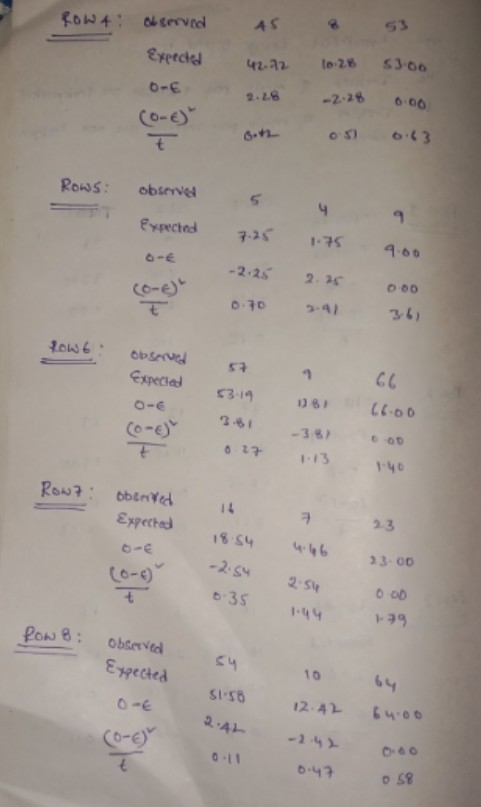 ROW 4: observed 45 8 53
Expected 42.72 10.28 53.00
O-E 2.28 -2.28 0.00
(O-E)²/t 0.12 0.51 0.63
ROW5: observed 5 4 9
Expected 7.25 1.75 9.00
O-E -2.25 2.25 0.00
(O-E)²/t 0.70 2.91 3.61
ROW6: observed 57 9 66
Expected 53.19 12.81 66.00
O-E 3.81 -3.81 0.00
(O-E)²/t 0.27 1.13 1.40
ROW7: observed 16 7 23
Expected 18.54 4.46 23.00
O-E -2.54 2.54 0.00
(O-E)²/t 0.35 1.44 1.79
ROW 8: observed 54 10 64
Expected 51.58 12.42 64.00
O-E 2.42 -2.42 0.00
(O-E)²/t 0.11 0.47 0.58